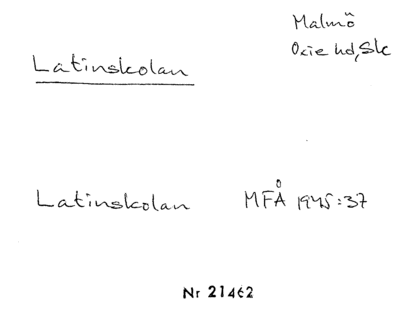 Malmö
Oxie hd, Sk
Latinskolan
Latinskolan MFÅ 1945:37
Nr 21462